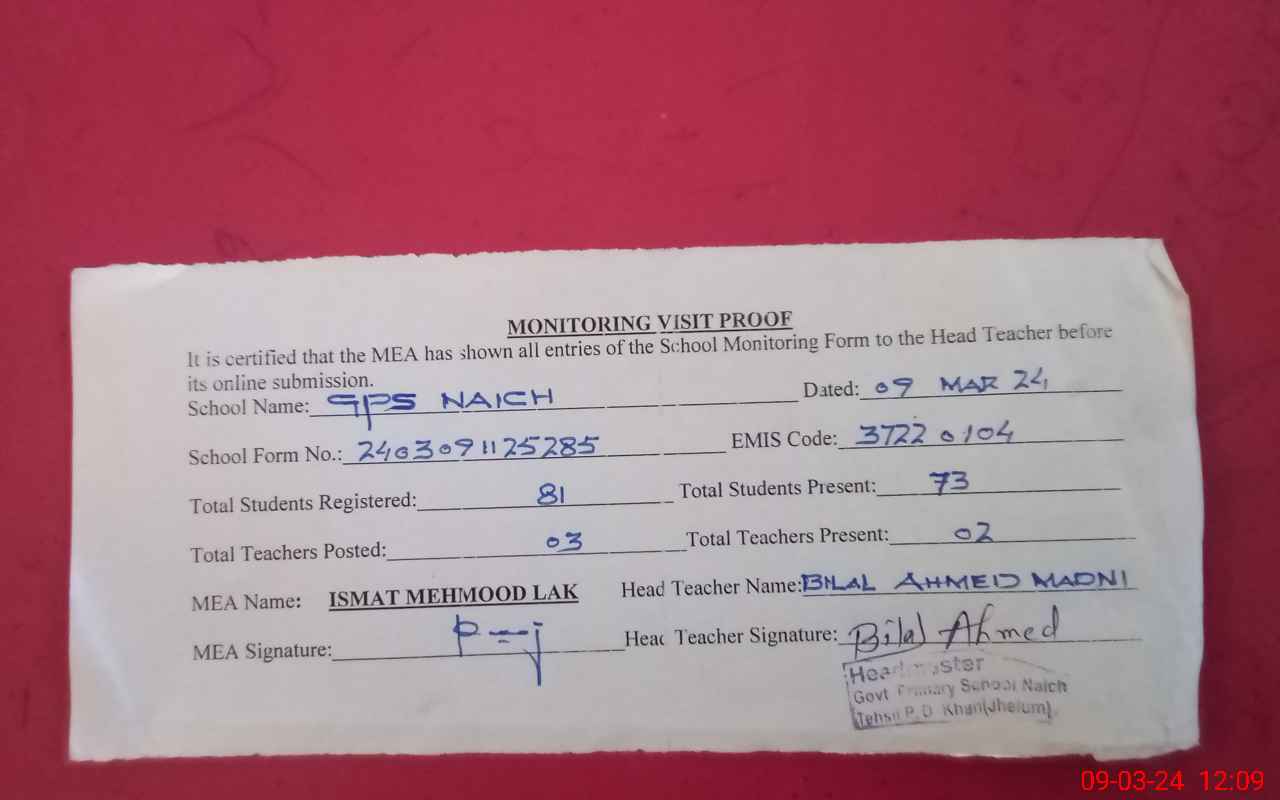 MONITORING VISIT PROOF
It is certified that the MEA has shown all entries of the School Monitoring Form to the Head Teacher before
its online submission.
School Name: GPS NAICH Dated: 09 MAR 24
School Form No.: 2403091125285 EMIS Code: 37220104
Total Students Registered: 81 Total Students Present: 73
Total Teachers Posted: 03 Total Teachers Present: 02
MEA Name: ISMAT MEHMOOD LAK Head Teacher Name: BILAL AHMED MADNI
MEA Signature: Head Teacher Signature: Bilal Ahmed
Headmaster
Govt Primary School Naich
Tehsil P.D Khan(Jhelum)
09-03-24 12:09